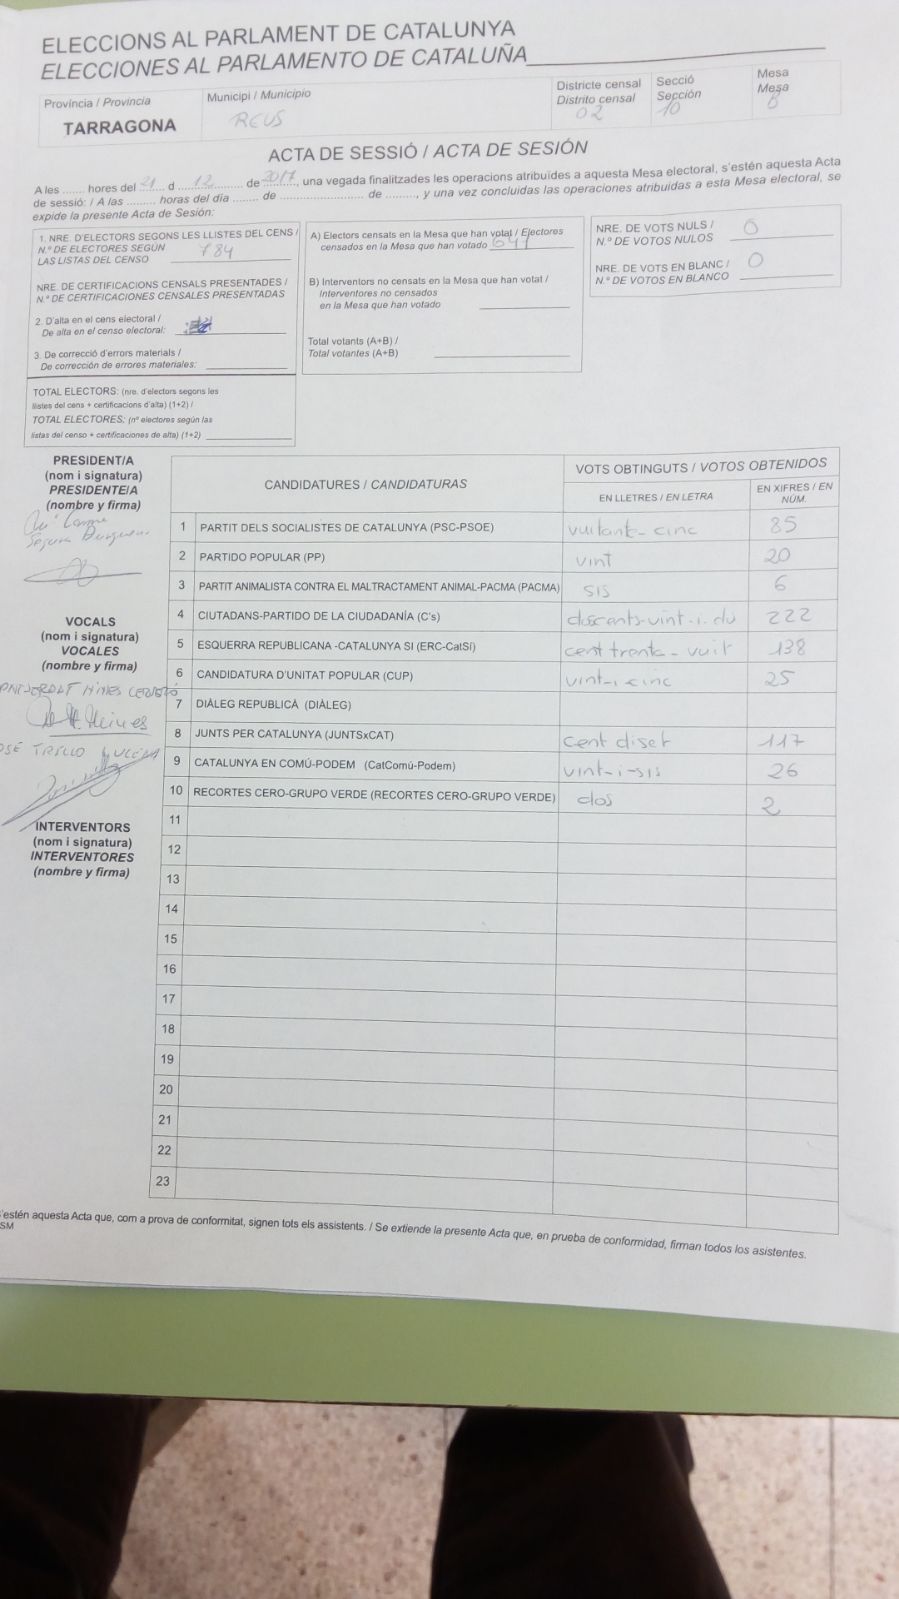 ELECCIONS AL PARLAMENT DE CATALUNYA
ELECCIONES AL PARLAMENTO DE CATALUÑA
Província / Provincia
TARRAGONA
Municipi / Municipio
REUS
Districte censal
Distrito censal
02
Secció
Sección
10
Mesa
Mesa
B
ACTA DE SESSIÓ / ACTA DE SESIÓN
A les ....... hores del 21 d 12 de 2017, una vegada finalitzades les operacions atribuïdes a aquesta Mesa electoral, s'estén aquesta Acta
de sessió: / A las ......... horas del día ........ de ......................... de ........., y una vez concluidas las operaciones atribuidas a esta Mesa electoral, se
expide la presente Acta de Sesión:
1. NRE. D'ELECTORS SEGONS LES LLISTES DEL CENS /
N.º DE ELECTORES SEGÚN
LAS LISTAS DEL CENSO 784
NRE. DE CERTIFICACIONS CENSALS PRESENTADES /
N.º DE CERTIFICACIONES CENSALES PRESENTADAS
2. D'alta en el cens electoral /
De alta en el censo electoral:
3. De correcció d'errors materials /
De corrección de errores materiales:
TOTAL ELECTORS: (nre. d'electors segons les
llistes del cens + certificacions d'alta) (1+2) /
TOTAL ELECTORES: (nº electores según las
listas del censo + certificaciones de alta) (1+2)
A) Electors censats en la Mesa que han votat / Electores
censados en la Mesa que han votado 641
B) Interventors no censats en la Mesa que han votat /
Interventores no censados
en la Mesa que han votado
Total votants (A+B) /
Total votantes (A+B)
NRE. DE VOTS NULS /
N.º DE VOTOS NULOS 0
NRE. DE VOTS EN BLANC /
N.º DE VOTOS EN BLANCO 0
PRESIDENT/A
(nom i signatura)
PRESIDENTE/A
(nombre y firma)
Mª Carme
Segura
VOCALS
(nom i signatura)
VOCALES
(nombre y firma)
JOSÉ TRILLO LUCENA
INTERVENTORS
(nom i signatura)
INTERVENTORES
(nombre y firma)
CANDIDATURES / CANDIDATURAS
VOTS OBTINGUTS / VOTOS OBTENIDOS
EN LLETRES / EN LETRA
EN XIFRES / EN NÚM.
1 PARTIT DELS SOCIALISTES DE CATALUNYA (PSC-PSOE) vuitanta-cinc 85
2 PARTIDO POPULAR (PP) vint 20
3 PARTIT ANIMALISTA CONTRA EL MALTRACTAMENT ANIMAL-PACMA (PACMA) sis 6
4 CIUTADANS-PARTIDO DE LA CIUDADANÍA (C's) doscents-vint-i-du 222
5 ESQUERRA REPUBLICANA -CATALUNYA SI (ERC-CatSí) cent trenta-vuit 138
6 CANDIDATURA D'UNITAT POPULAR (CUP) vint-i-cinc 25
7 DIÀLEG REPUBLICÀ (DIÀLEG)
8 JUNTS PER CATALUNYA (JUNTSxCAT) cent diset 117
9 CATALUNYA EN COMÚ-PODEM (CatComú-Podem) vint-i-sis 26
10 RECORTES CERO-GRUPO VERDE (RECORTES CERO-GRUPO VERDE) dos 2
11
12
13
14
15
16
17
18
19
20
21
22
23
S'estén aquesta Acta que, com a prova de conformitat, signen tots els assistents. / Se extiende la presente Acta que, en prueba de conformidad, firman todos los asistentes.
SM